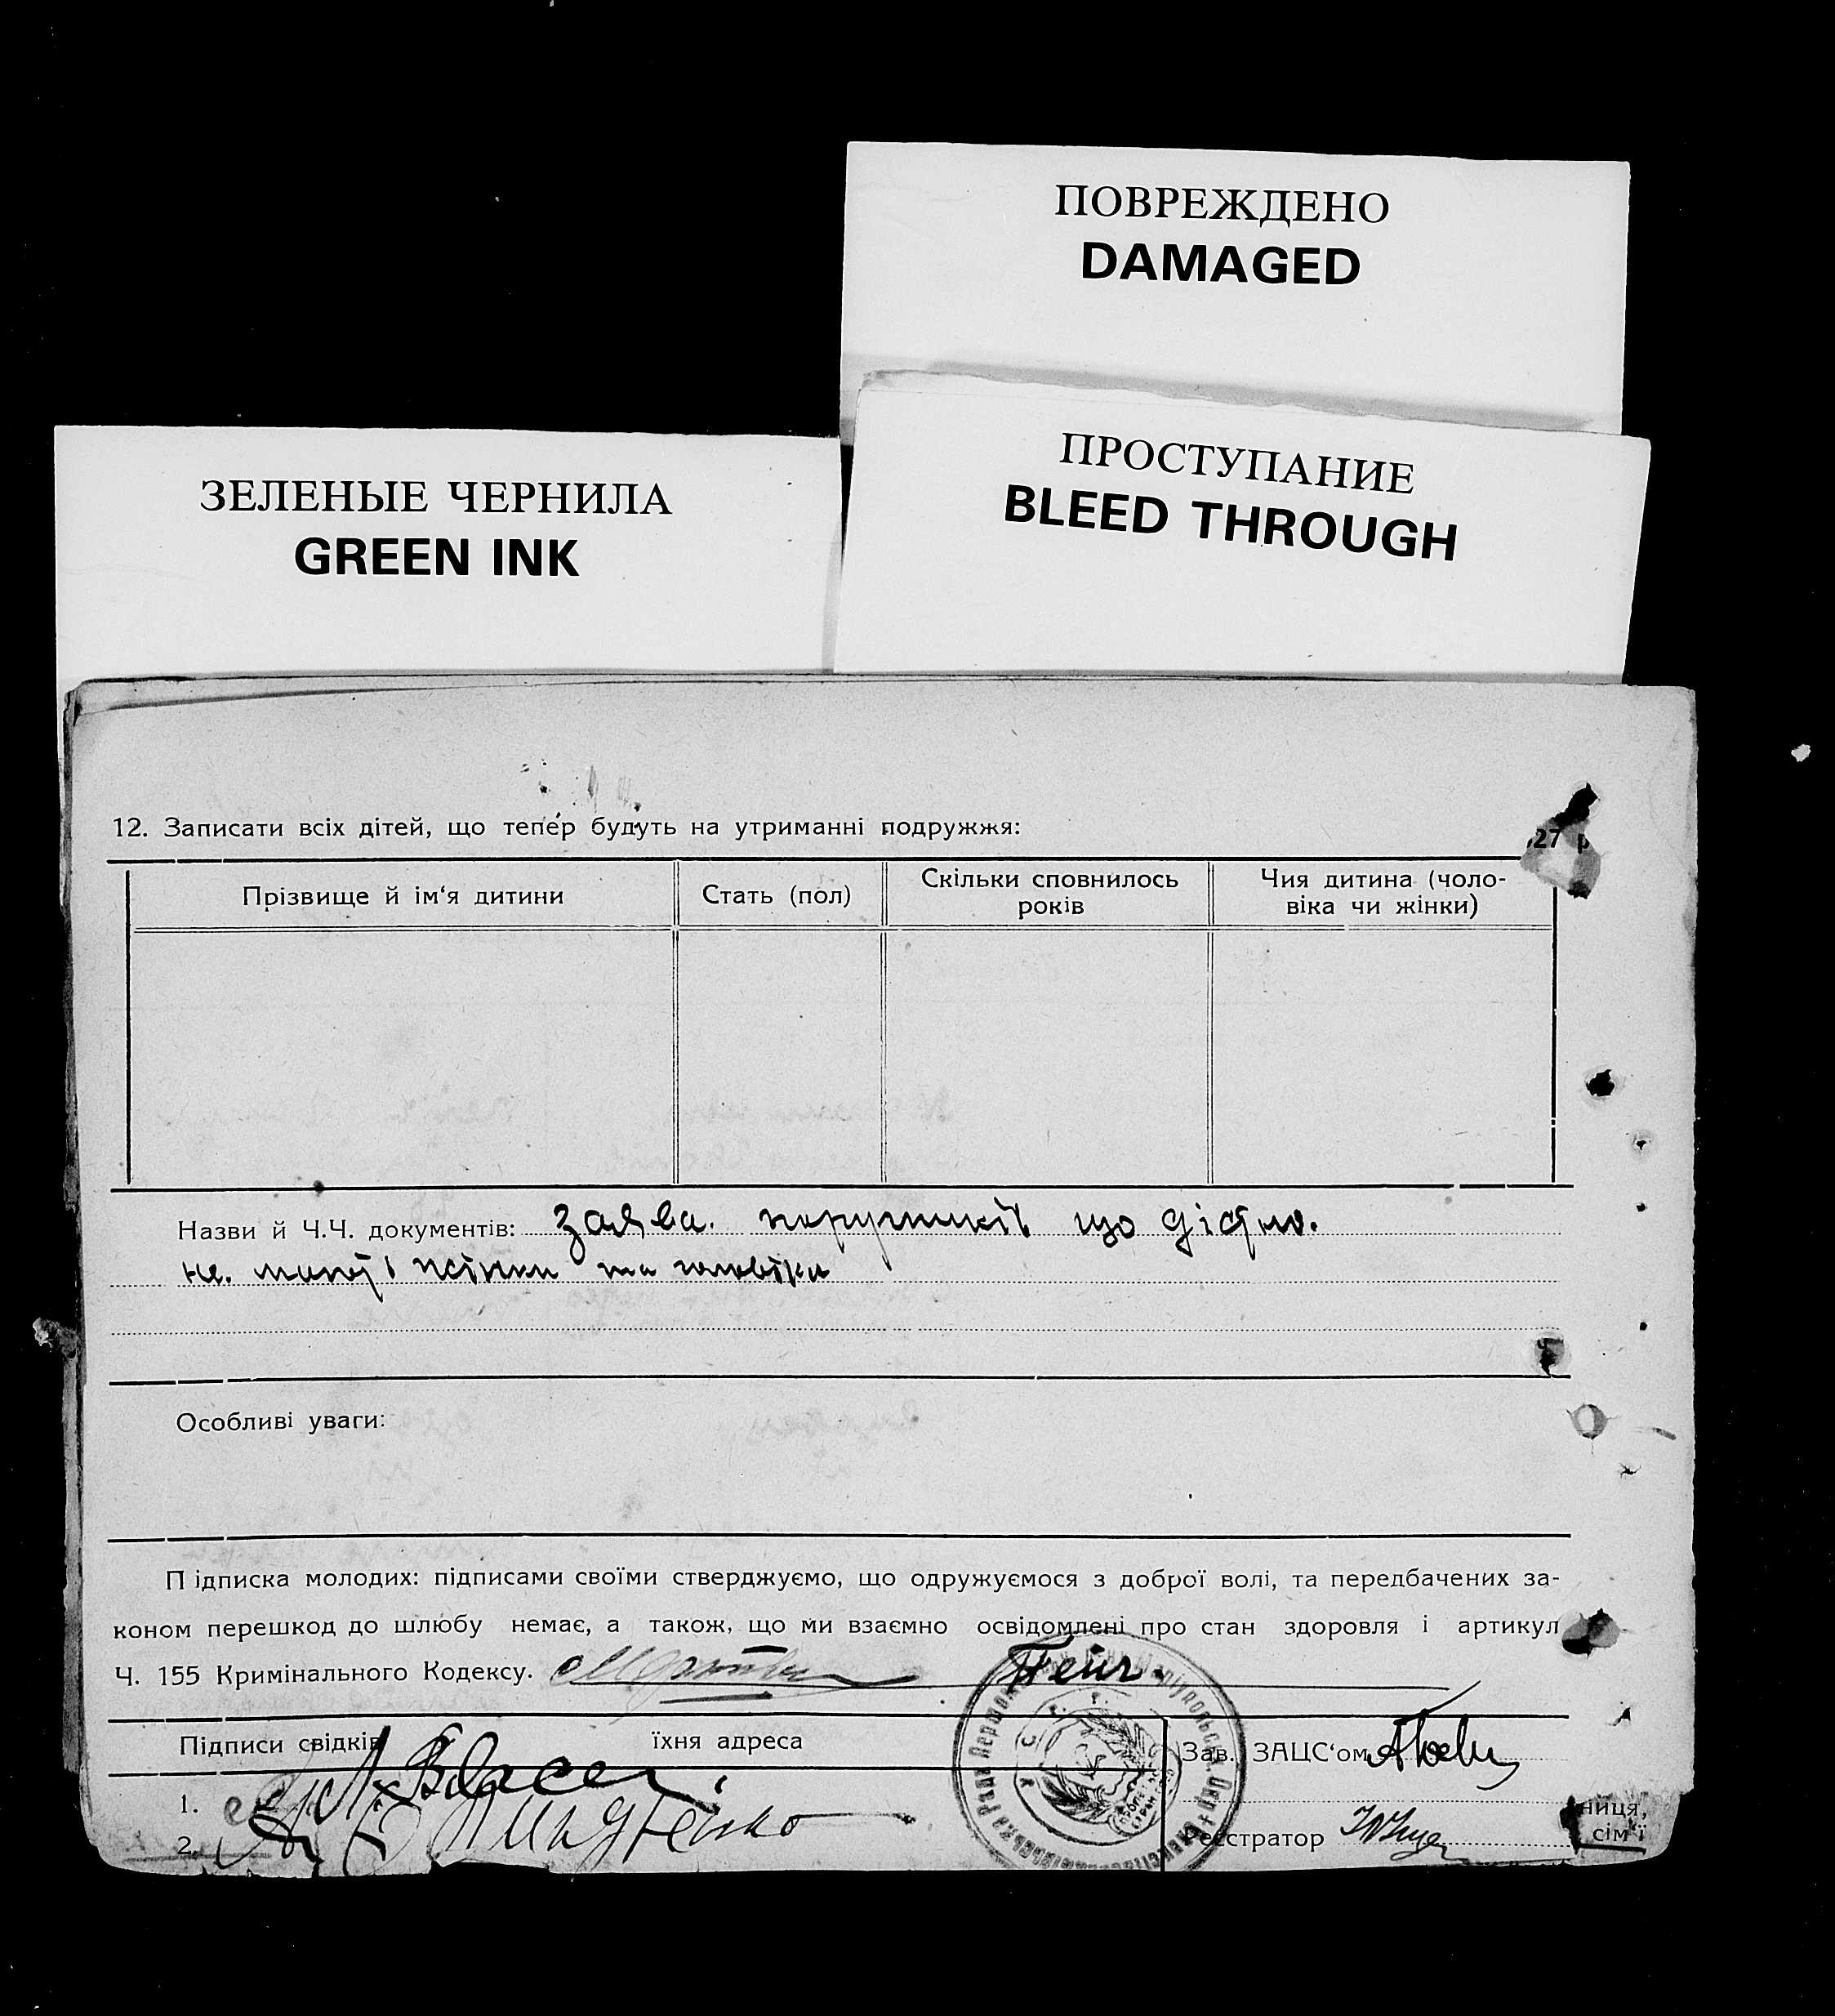 ПОВРЕЖДЕНО
DAMAGED
ПРОСТУПАНИЕ
BLEED THROUGH
ЗЕЛЕНЫЕ ЧЕРНИЛА
GREEN INK
12. Записати всіх дітей, що тепер будуть на утриманні подружжя:
27 р
Прізвище й ім‘я дитини
Стать (пол)
Скільки сповнилось
років
Чия дитина (чоло-
віка чи жінки)
Назви й Ч.Ч. документів: заява. що
не. жінки та чоловіка
Особливі уваги:
Підписка молодих: підписами своїми стверджуємо, що одружуємося з доброї волі, та передбачених за-
коном перешкод до шлюбу немає, а також, що ми взаємно освідомлені про стан здоровля і артикул
Ч. 155 Кримінального Кодексу.
Підписи свідків
їхня адреса
Зав. ЗАЦС‘ом
1.
2.
Реєстратор
ниця,
сім‘ї